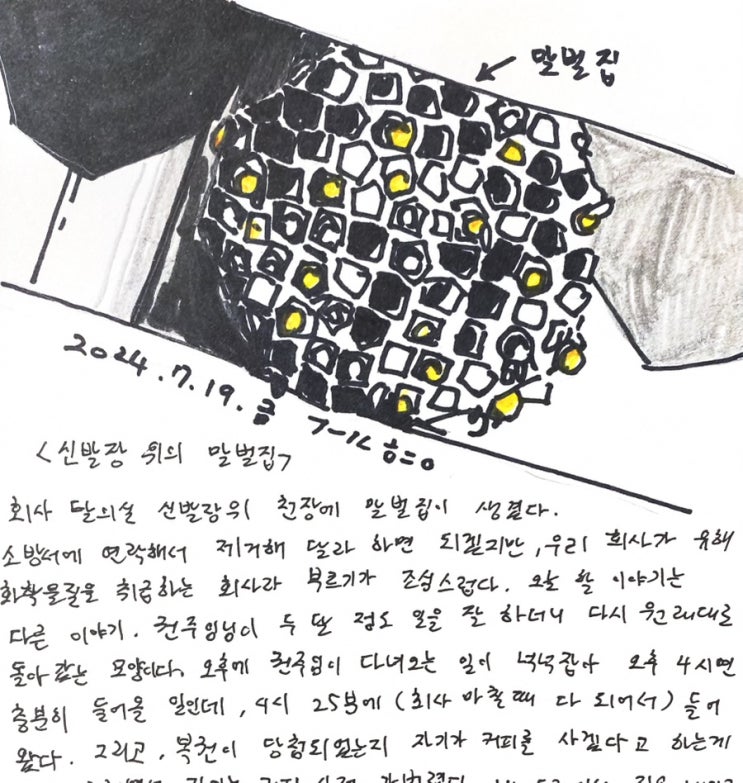 말벌집
2024.7.19.금
<신발장 위의 말벌집>
회사 탈의실 신발장위 천장에 말벌집이 생겼다.
소방서에 연락해서 제거해 달라 하면 되겠지만, 우리 회사가 유해
화학물질을 취급하는 회사라 부르기가 조심스럽다. 오늘 할 이야기는
다른 이야기. 권주임님이 두 달 정도 일을 잘 하더니 다시 원래대로
돌아갔는 모양이다. 오후에 권주임이 다녀오는 일이 넉넉잡아 오후 4시면
충분히 들어올 일인데, 4시 25분에 (회사 마칠 때 다 되어서) 들어
왔다. 그리고, 복권이 당첨되었는지 자기가 커피를 사겠다고 하는게